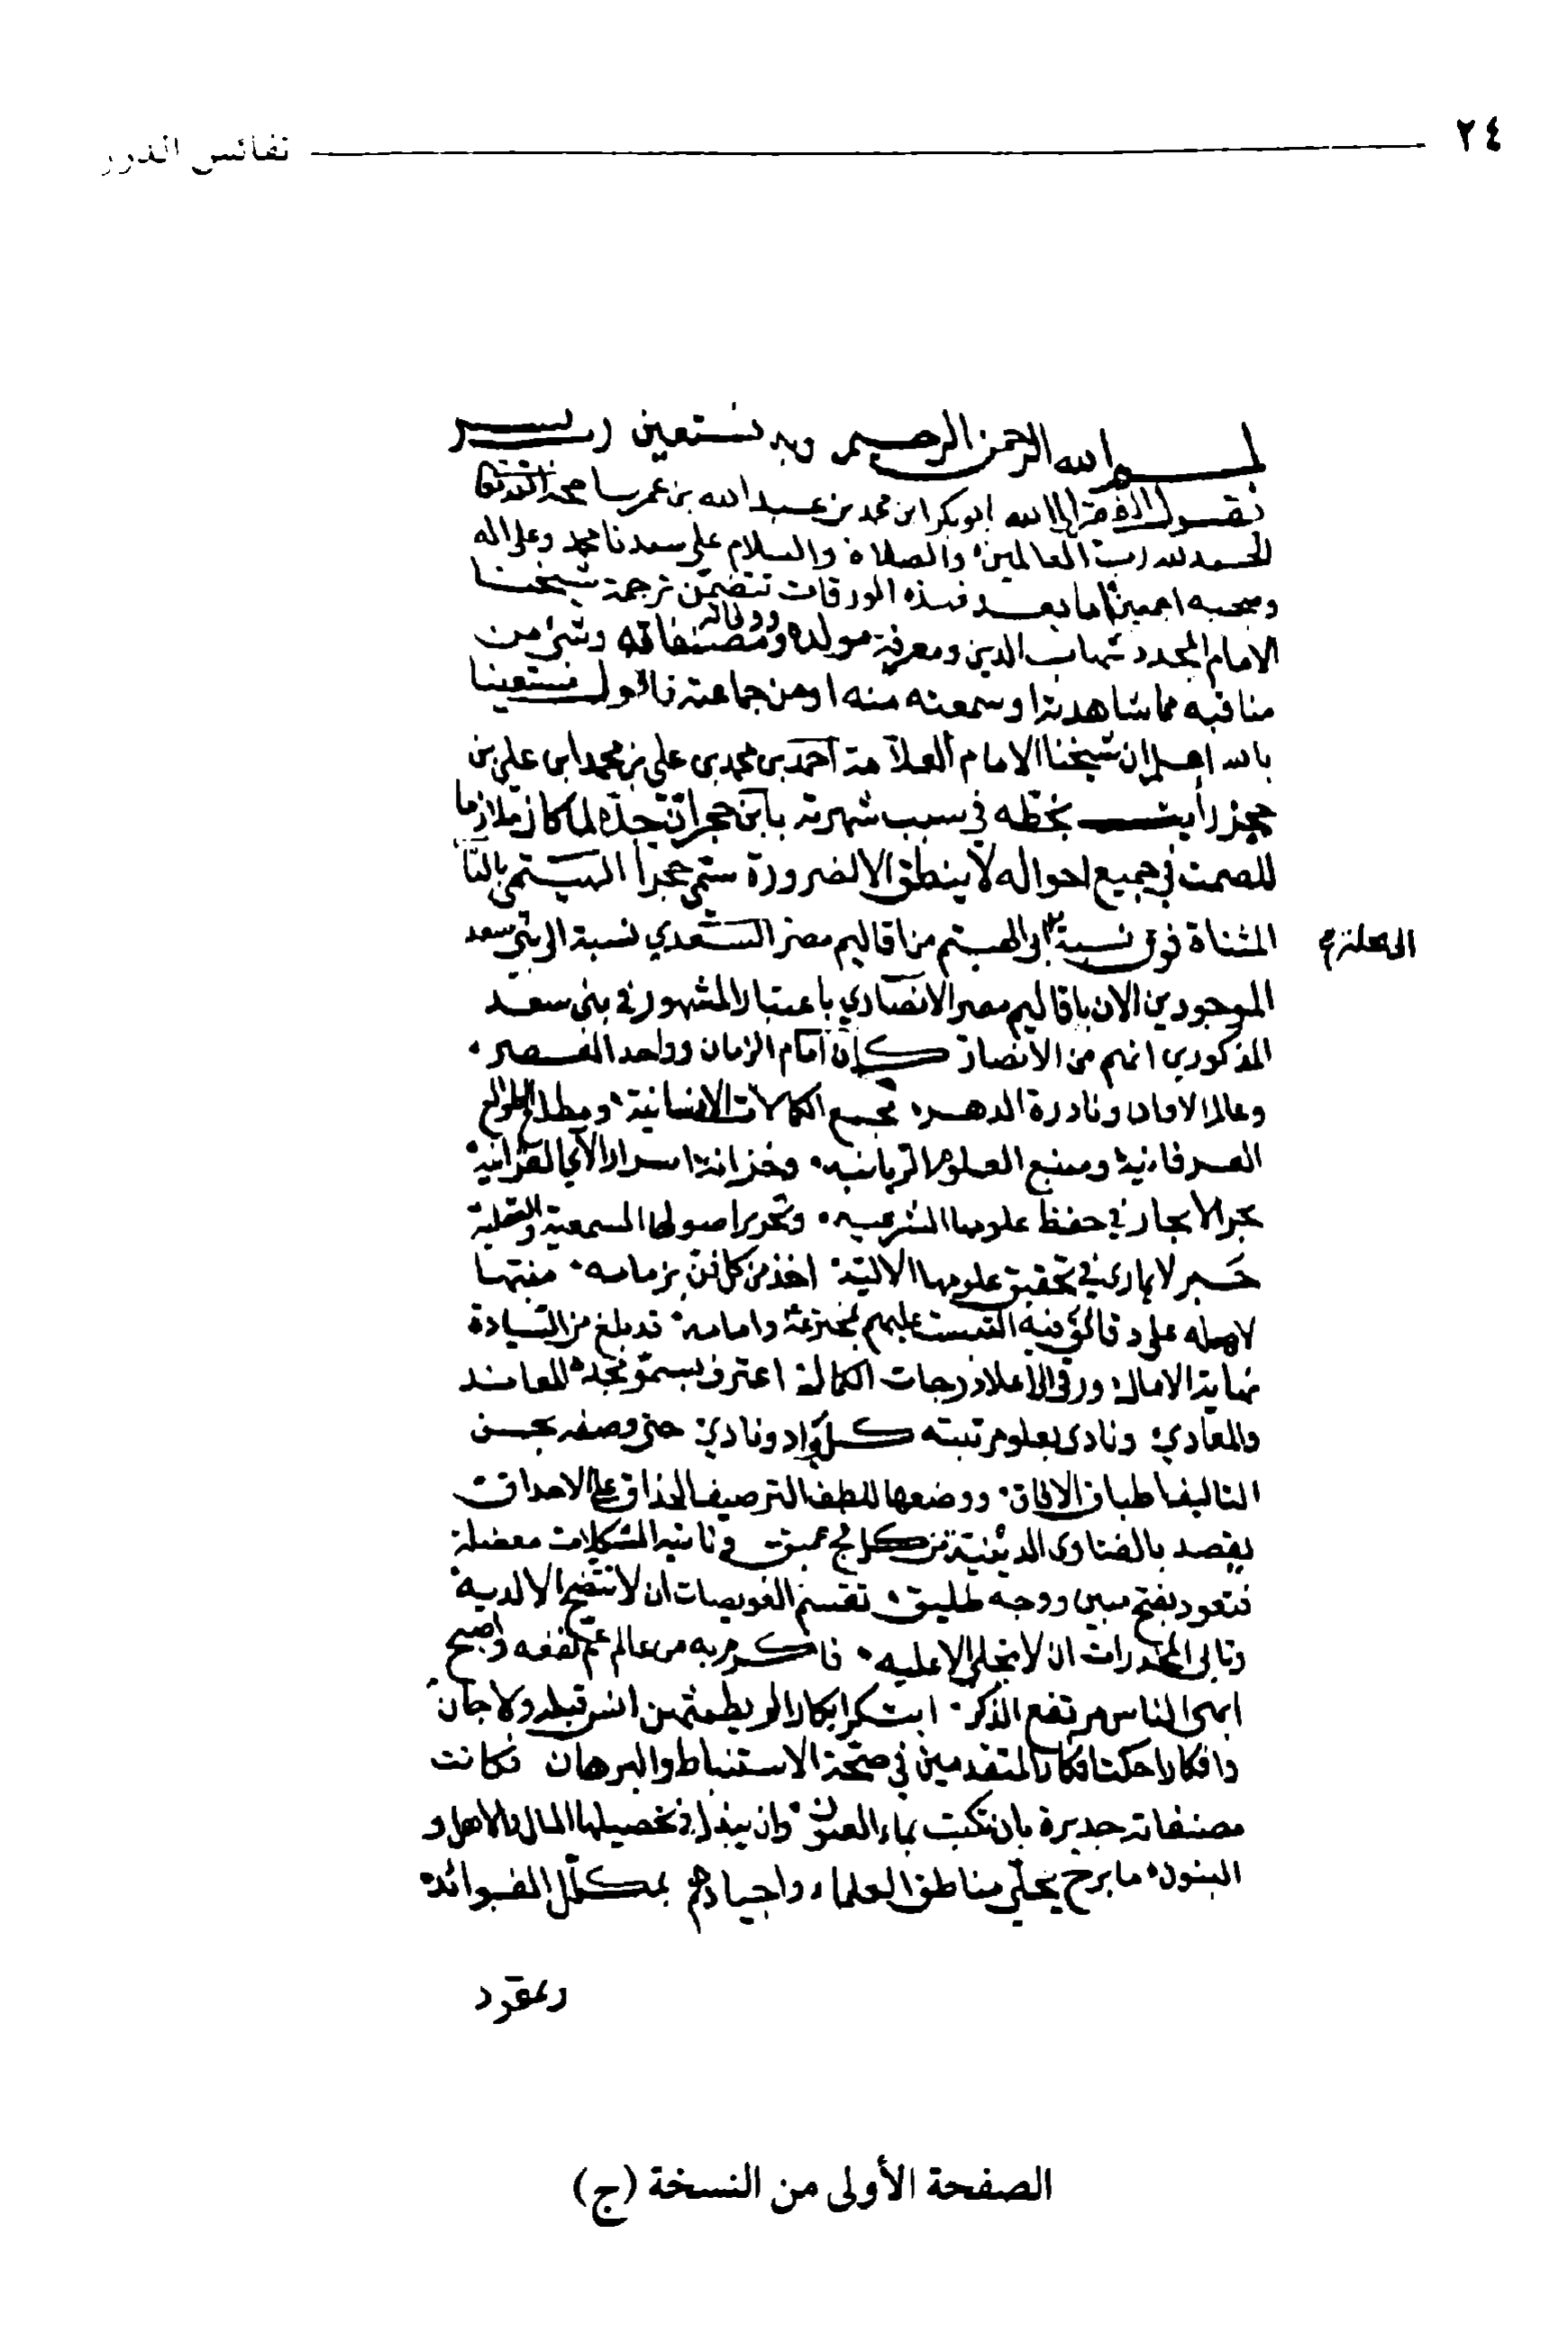 ٢٤
نفائس الدرر
بسم الله الرحمن الرحيم وبه نستعين رب يسر
يقول الفقير إلى الله ابو بكر ابن محمد بن عبد الله بن عمر
الحمد لله رب العالمين والصلاة والسلام على سيدنا محمد وعلى اله
وصحبه اجمعين اما بعد فهذه الورقات تتضمن ترجمة شيخنا
الامام المجدد شهاب الدين ومعرفة مولده ووفاته ومصنفاته وشئ من
مناقبه مما شاهدته او سمعته منه او من جماعته فاقول مستعينا
بالله اعلم ان شيخنا الامام العلامة احمد بن محمد بن علي بن محمد ابن علي بن
حجر رأيت بخطه في سبب شهرته بابن حجر ان جده لما كان ملازما
للصمت في جميع احواله لا ينطق الا لضرورة سمي حجرا الهيتمي بالتاء
المثناة فوق نسبة الى الهيتم من اقاليم مصر السعدي نسبة الى بني سعد
الموجودين الان باقاليم مصر الانصاري باعتبار المشهور في بني سعد
المذكورين انهم من الانصار كان امام الزمان وواحد العصر
وعالم الاوان ونادرة الدهر مجمع الكمالات الانسانية ومطلع الطوالع
العرفانية ومنبع العلوم الربانية وخزانة اسرار الآي القرانية
بحر الابحار في حفظ علومها الشرعية وتحرير اصولها السمعية والعقلية
حبر لا يمارى في تحقيق علومها الالية اخذ من كل فن بزمامه منتهيا
لاهله على دقائق فيه التبست عليهم وامامه قد بلغ من السيادة
نهاية الامال ورقى الى اعلا درجات الكمال اعترف بسمو مجده المعاند
والمعادي ونادى بعلو مرتبته كل واد ونادي حتى وصفه بحسن
التاليف اطباق الافاق ووضعها للطف الترصيف الحذاق على الاحداق
يقصد بالفتاوى الدينية من كل فج عميق وتاتيه المشكلات معضلة
فتعود بفتح مبين ووجه طليق تقسم العويصات ان لا تتضح الا لديه
وتابى المخدرات ان لا تجلى الا عليه فاكرم به من عالم عم نفعه واصبح
الناس مرتفع الذكر ابتكر ابكارا لم يطمثهن انس قبله ولا جان
وافكارا حكت افكار المتقدمين في صحة الاستنباط والبرهان فكانت
مصنفاته جديرة بان تكتب بماء العيون وان يبذل في تحصيلها المال والاهل و
البنون ما برح يحلي مناطق العلماء واجيادهم بمكلل الفرائد
وعقود
الصفحة الأولى من النسخة (ج)